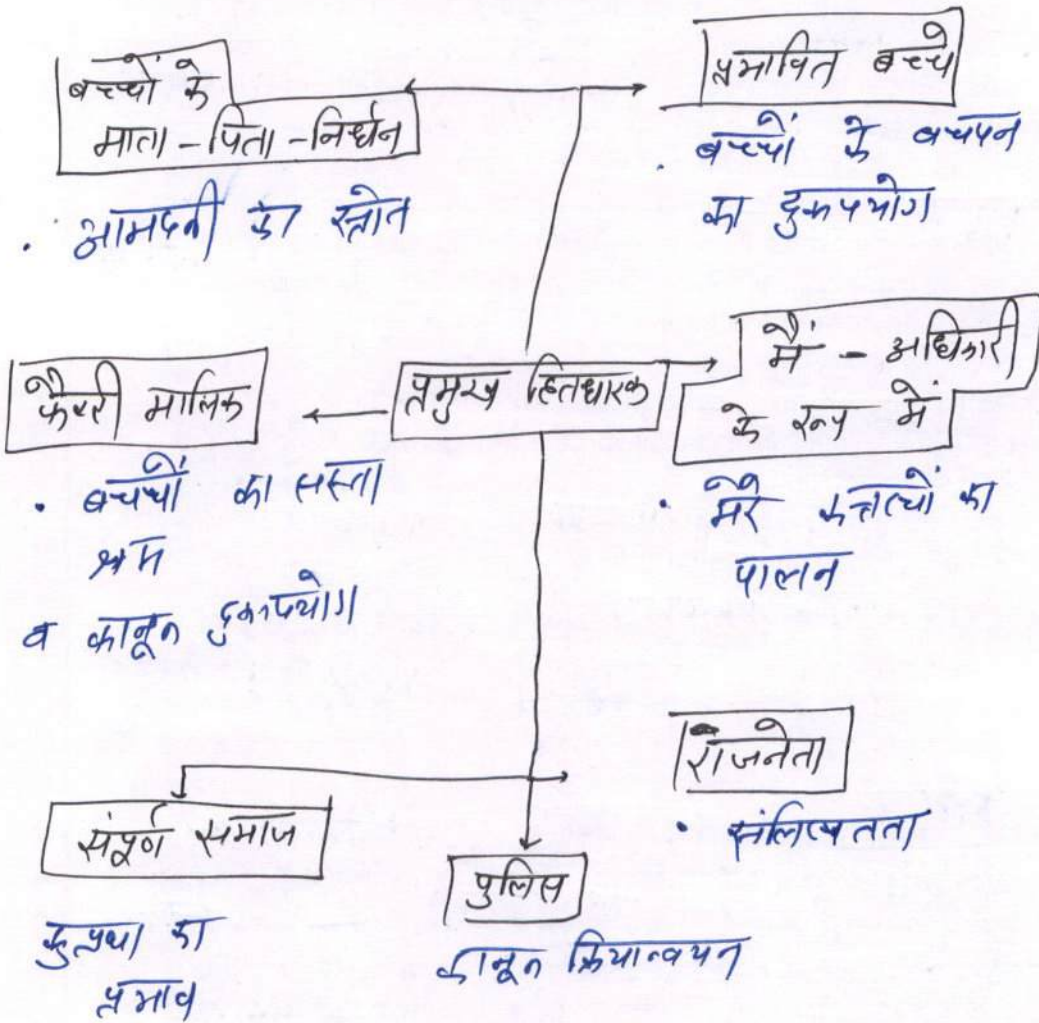 बच्चों के
माता-पिता-निर्धन
. आमदनी का स्त्रोत
प्रभावित बच्चे
. बच्चों के बचपन
का दुरूपयोग
फैक्ट्री मालिक
. बच्चों का सस्ता
श्रम
व कानून दुरूपयोग
प्रमुख हितधारक
मैं - अधिकारी
के रूप में
. मेरे कर्त्तव्यों का
पालन
राजनेता
. संलिप्तता
संपूर्ण समाज
कुप्रथा का
प्रभाव
पुलिस
कानून क्रियान्वयन